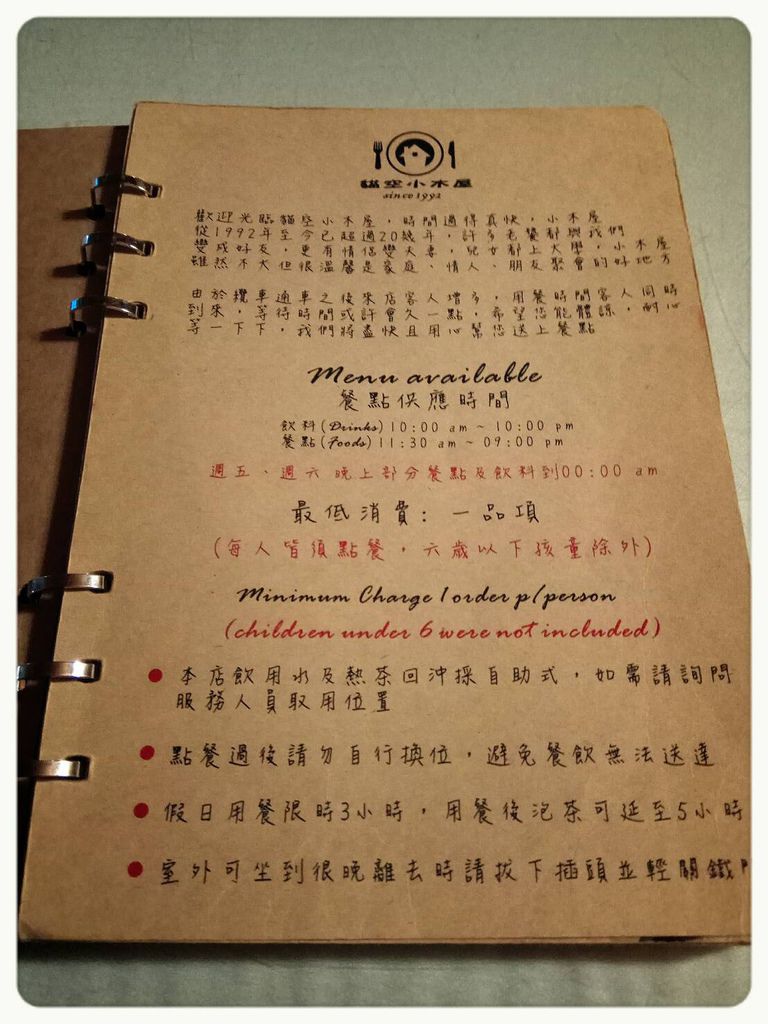 貓空小木屋
since 1992
歡迎光臨貓空小木屋，時間過得真快，小木屋
從1992年至今已超過20幾年，許多老饕都與我們
變成好友，更有情侶變夫妻，兒女都上大學，小木屋
雖然不大但很溫馨是家庭、情人、朋友聚會的好地方
由於纜車通車之後來店客人增多，用餐時間客人同時
到來，等待時間或許會久一點，希望您能體諒，耐心
等一下下，我們將盡快且用心幫您送上餐點
Menu available
餐點供應時間
飲料(Drinks) 10:00 am ~ 10:00 pm
餐點(Foods) 11:30 am ~ 09:00 pm
週五、週六晚上部分餐點及飲料到00:00 am
最低消費: 一品項
(每人皆須點餐，六歲以下孩童除外)
Minimum Charge 1 order p/person
(children under 6 were not included)
本店飲用水及熱茶回沖採自助式，如需請詢問
服務人員取用位置
點餐過後請勿自行換位，避免餐飲無法送達
假日用餐限時3小時，用餐後泡茶可延至5小時
室外可坐到很晚離去時請拔下插頭並輕關鐵